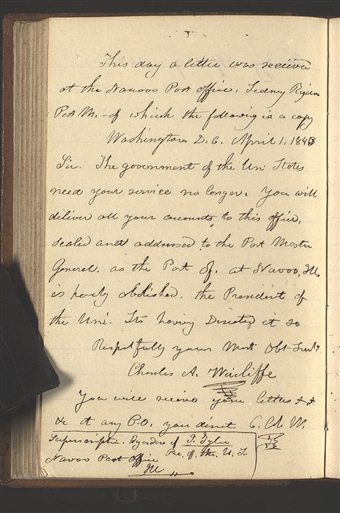 This day a letter was received
at the Nauvoo Post office, Sidney Rigdon
Post M.- of which the following is a copy
Washington D.C. April 1, 1843
Sir. The government of the Uni States
need your service no longer. You will
deliver all your accounts to this office,
sealed and addressed to the Post Master
General. as the Post Of. at Nauvoo, Ill
is hereby abolished. the President of
the Uni. Sts having Directed it so
Respectfully your Most Obt Servt
Charles A. Wicliffe
You will receive your letters &
&c at any P.O. you direct C. A. W.
Superscription. By order of J. Tyler
Nauvoo Post Office Pre. of the U. S.
Ill.